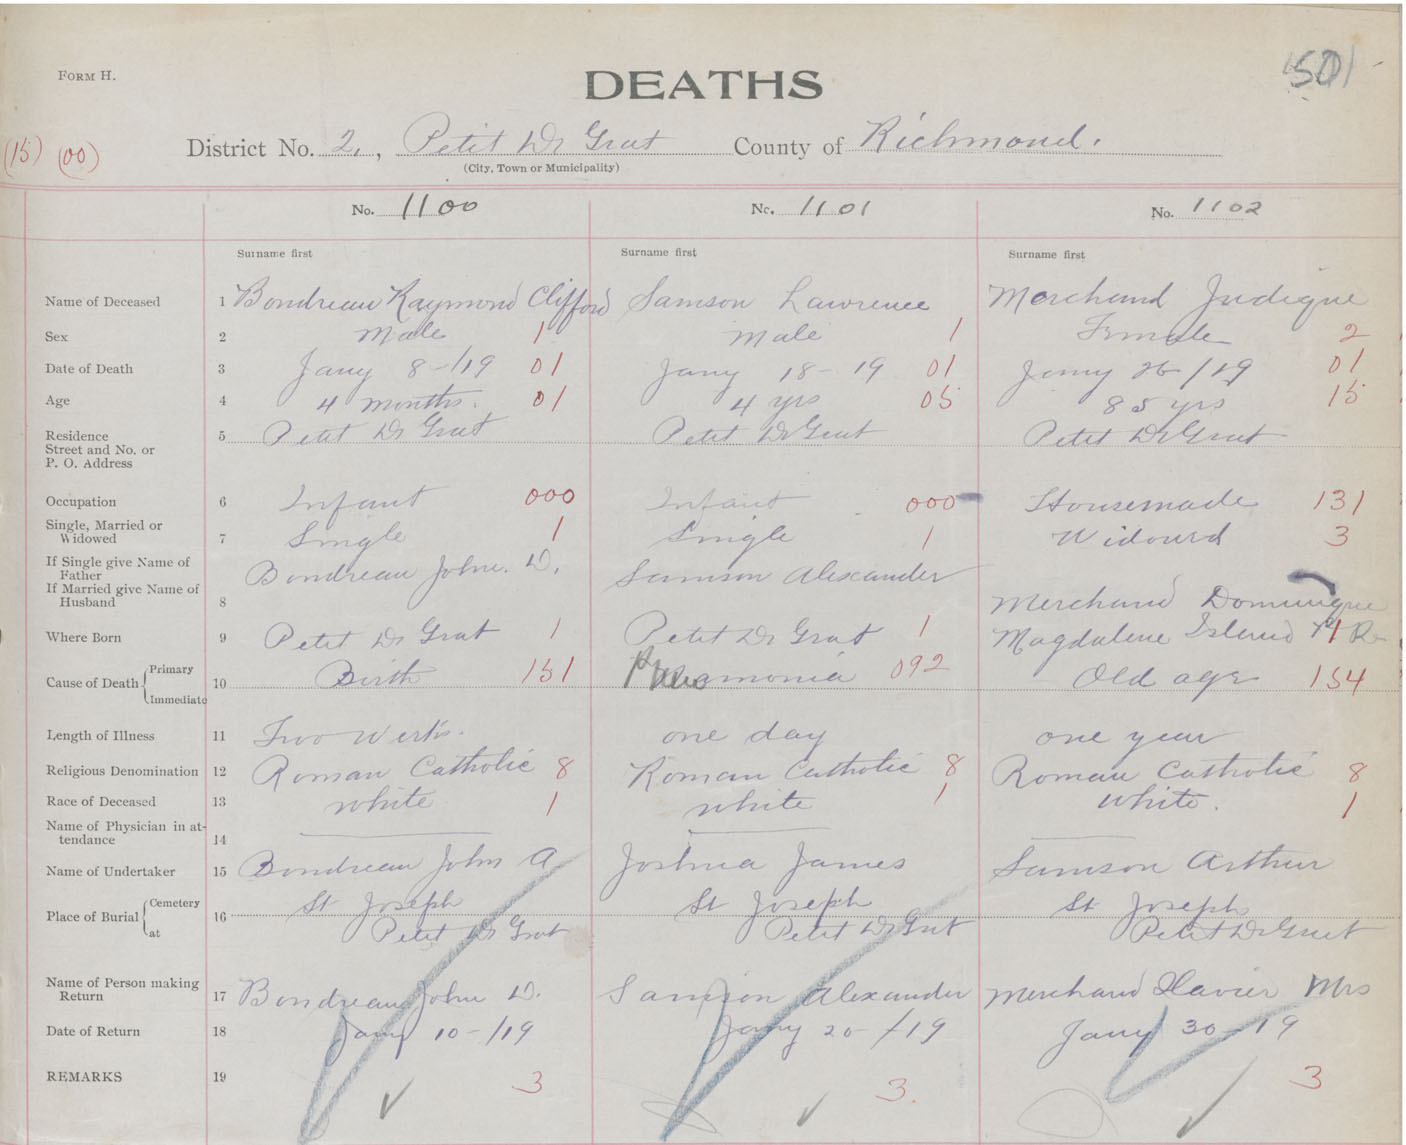 FORM H.
DEATHS
501
(15) (00) District No. 2, Petit Dr Grat County of Richmond.
(City, Town or Municipality)
No. 1100 No. 1101 No. 1102
Surname first Surname first Surname first
Name of Deceased 1 Boudreau Raymond Clifford Samson Lawrence Merchand Judique
Sex 2 Male 1 Male 1 Female 2
Date of Death 3 Jany 8-/19 01 Jany 18-19 01 Jany 26/19 01
Age 4 4 months. 01 4 yrs 05 85 yrs 15
Residence 5 Petit Dr Grat Petit Dr Grat Petit Dr Grat
Street and No. or
P. O. Address
Occupation 6 Infant 000 Infant 000 Housemade 131
Single, Married or
Widowed 7 Single 1 Single 1 Widowed 3
If Single give Name of
Father Boudreau John. D. Samson Alexander
If Married give Name of
Husband 8 Merchand Dominique
Where Born 9 Petit Dr Grat 1 Petit Dr Grat 1 Magdalene Island 1
Cause of Death Primary 10 Birth 151 Pneumonia 092 Old age 154
Immediate
Length of Illness 11 Two Weeks. one day one year
Religious Denomination 12 Roman Catholic 8 Roman Catholic 8 Roman Catholic 8
Race of Deceased 13 white 1 white 1 white. 1
Name of Physician in at-
tendance 14
Name of Undertaker 15 Boudreau John A Joshua James Samson Arthur
Place of Burial Cemetery 16 St Joseph St Joseph St Joseph
at Petit Dr Grat Petit Dr Grat Petit Dr Grat
Name of Person making
Return 17 Boudreau John D. Samson Alexander Merchand Xavier Mrs
Date of Return 18 Jany 10-/19 Jany 20-/19 Jany 30-19
REMARKS 19 3 3. 3